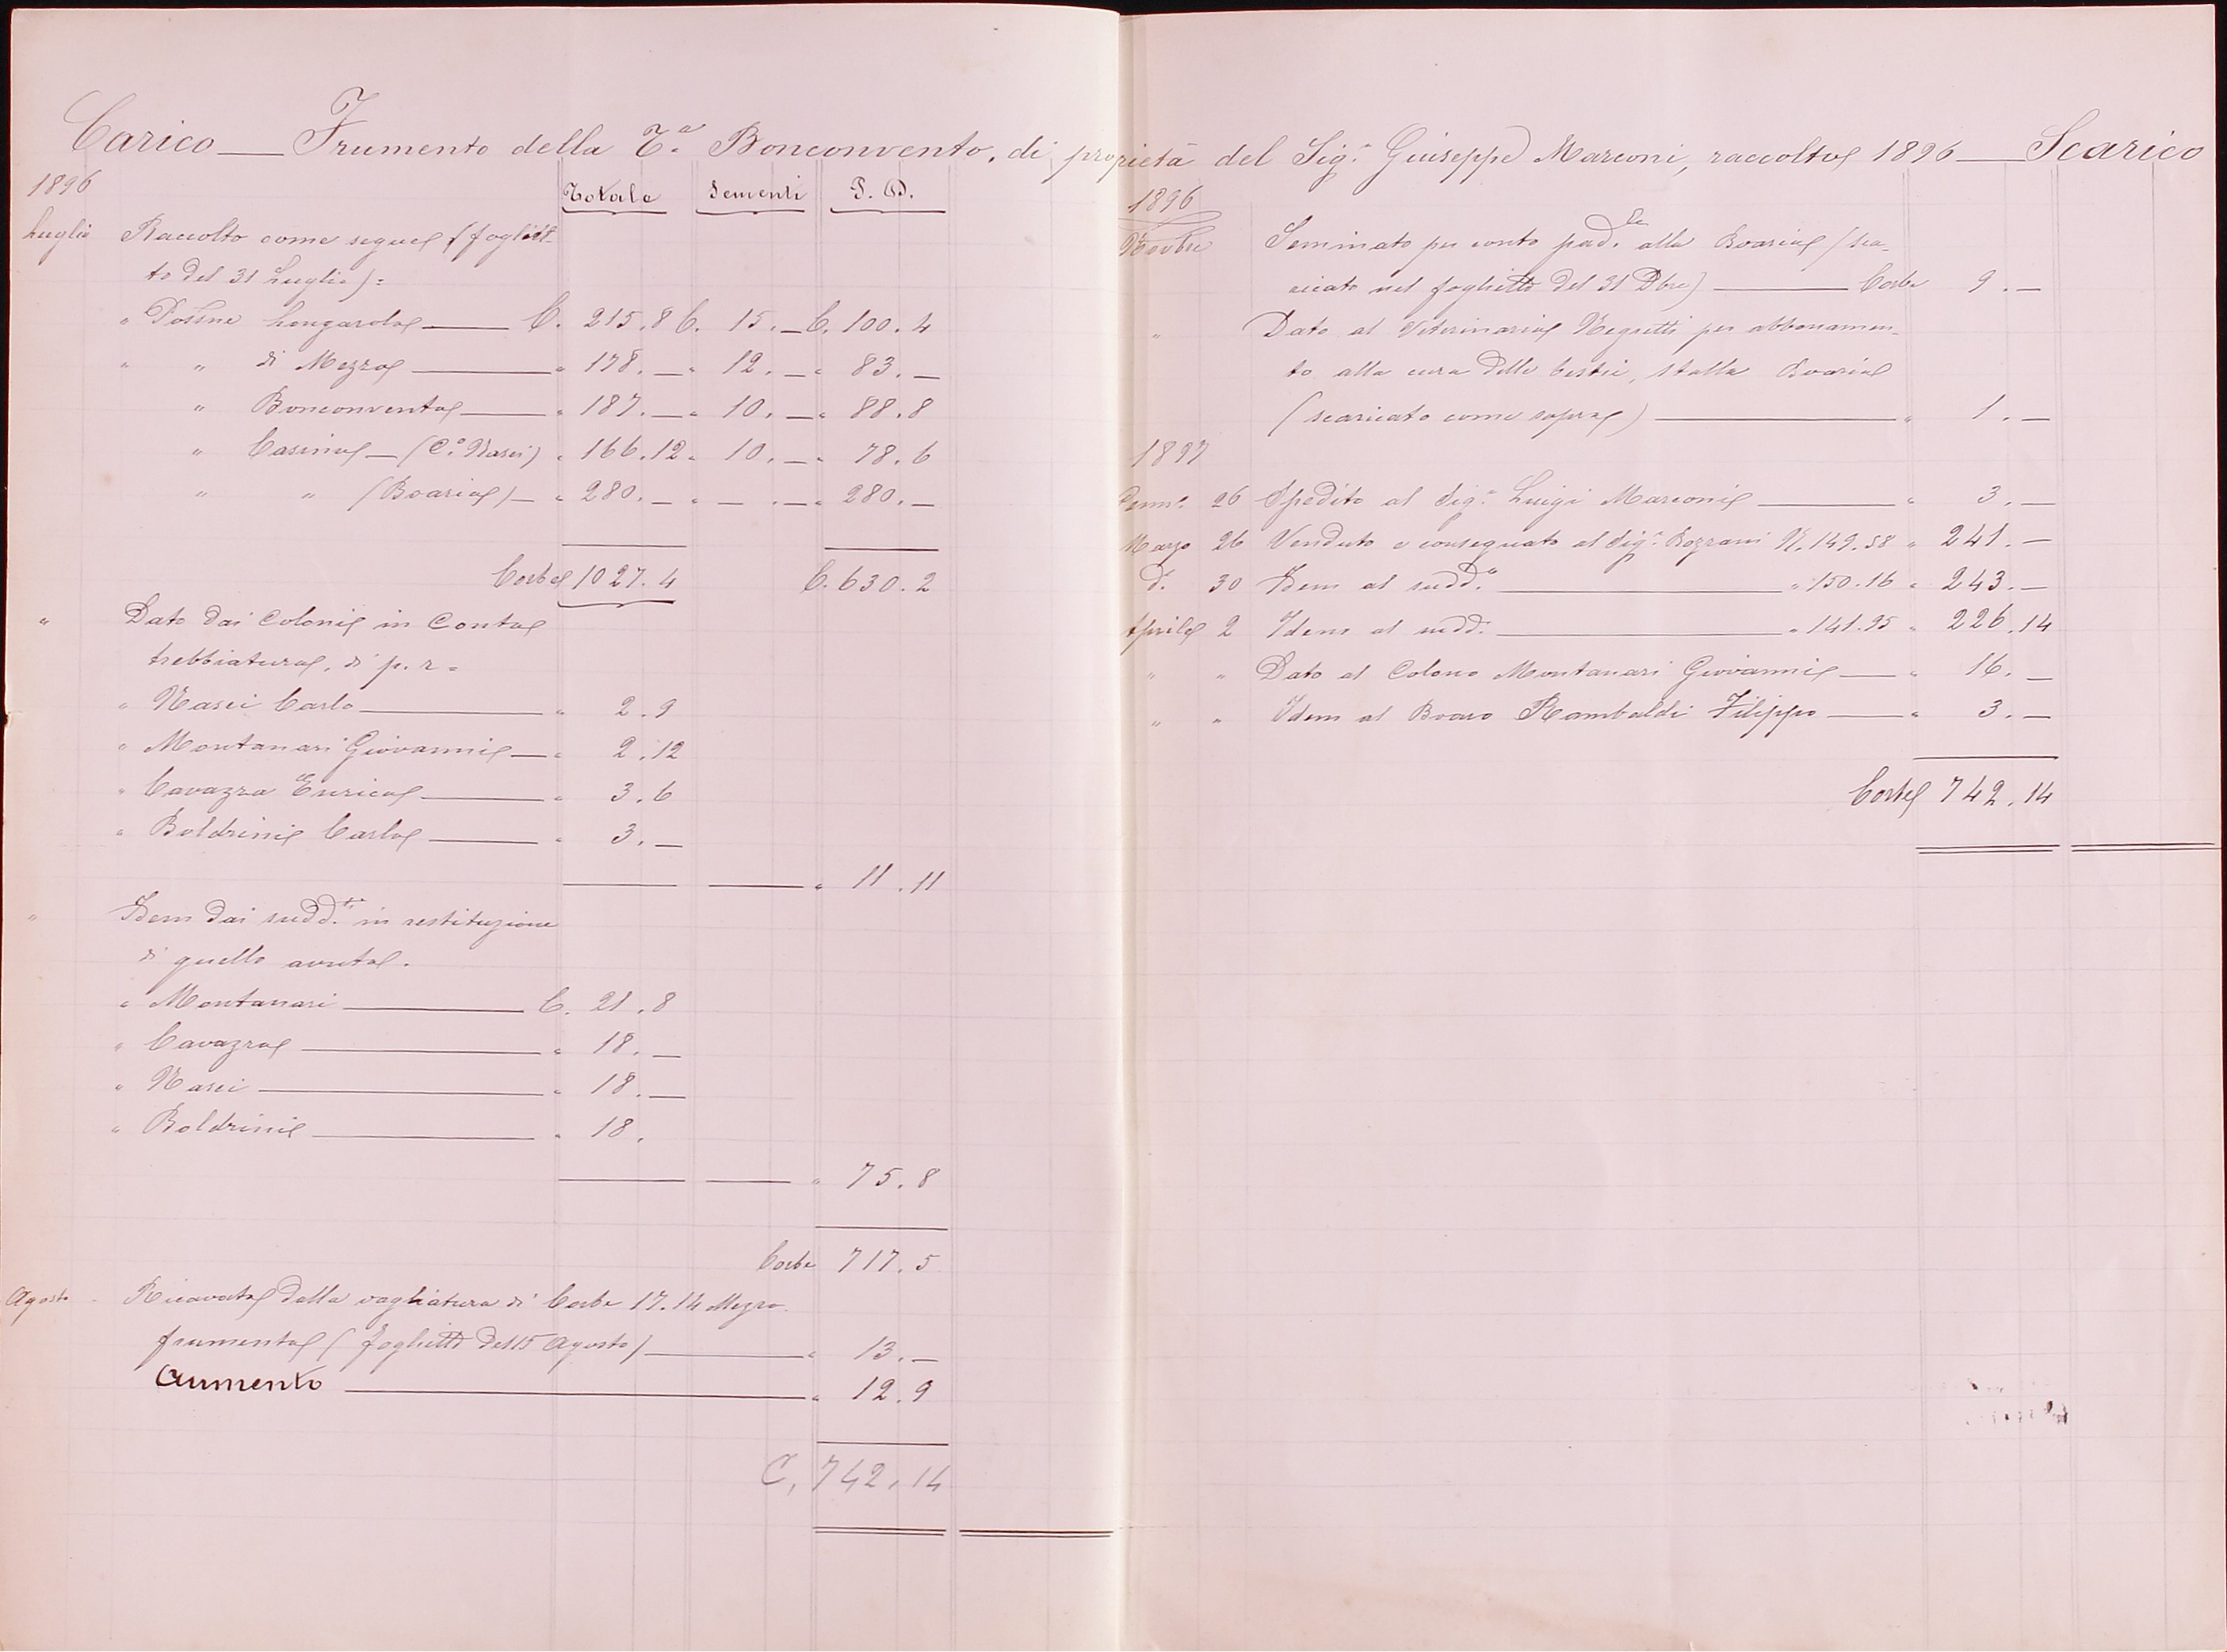 Carico — Frumento della T.ª Bonconvento, di proprietà del Sig.r Giuseppe Marconi, raccolto 1896 — Scarico
1896
Totale Sementi P. D.
Luglio Raccolto come segue (fogliet-
to del 31 Luglio) =
" Poss.ne Longarola — C. 215.8 C. 15. — C. 100.4
" " di Mezzo — " 178. — " 12. — " 83. —
" Bonconvento — " 187. — " 10. — " 88.8
" Casino — (C.º Nasci) " 166.12 " 10. — " 78.6
" " (Boaria) — " 280. — " — . — " 280. —
Corbe 1027.4 C. 630.2
" Dato dai Coloni in Conto
trebbiatura, di p. r =
" Nasci Carlo — " 2.9
" Montanari Giovanni — " 2.12
" Cavazza Enrico — " 3.6
" Boldrini Carlo — " 3. —
— — " 11.11
" Idem dai sudd.ti in restituzione
di quello avuto.
" Montanari — C. 21.8
" Cavazza — " 18. —
" Nasci — " 18. —
" Boldrini — " 18.
— — " 75.8
Corbe 717.5
Agosto Ricavato dalla vagliatura di Corbe 17.14 Mezzo
frumento (foglietto del 15 Agosto) — " 13. —
Aumento — " 12.9
C. 742.14
1896
9bre Seminato per conto pad.le alla Boaria (sca-
ricato nel foglietto del 31 Dbre) — Corbe 9. —
" Dato al Veterinario Negretti per abbonamen-
to alla cura delle bestie, stalla Boaria
(scaricato come sopra) — " 1. —
1897
Genn.º 26 Spedito al Sig.r Luigi Marconi — " 3. —
Marzo 26 Venduto e consegnato al Sig.r Bozzani K. 149.58 " 241. —
d.º 30 Idem al sudd.º — " 150.16 " 243. —
Aprile 2 Idem al sudd.º — " 141.95 " 226.14
" " Dato al Colono Montanari Giovanni — " 16. —
" " Idem al Boaro Rambaldi Filippo — " 3. —
Corbe 742.14